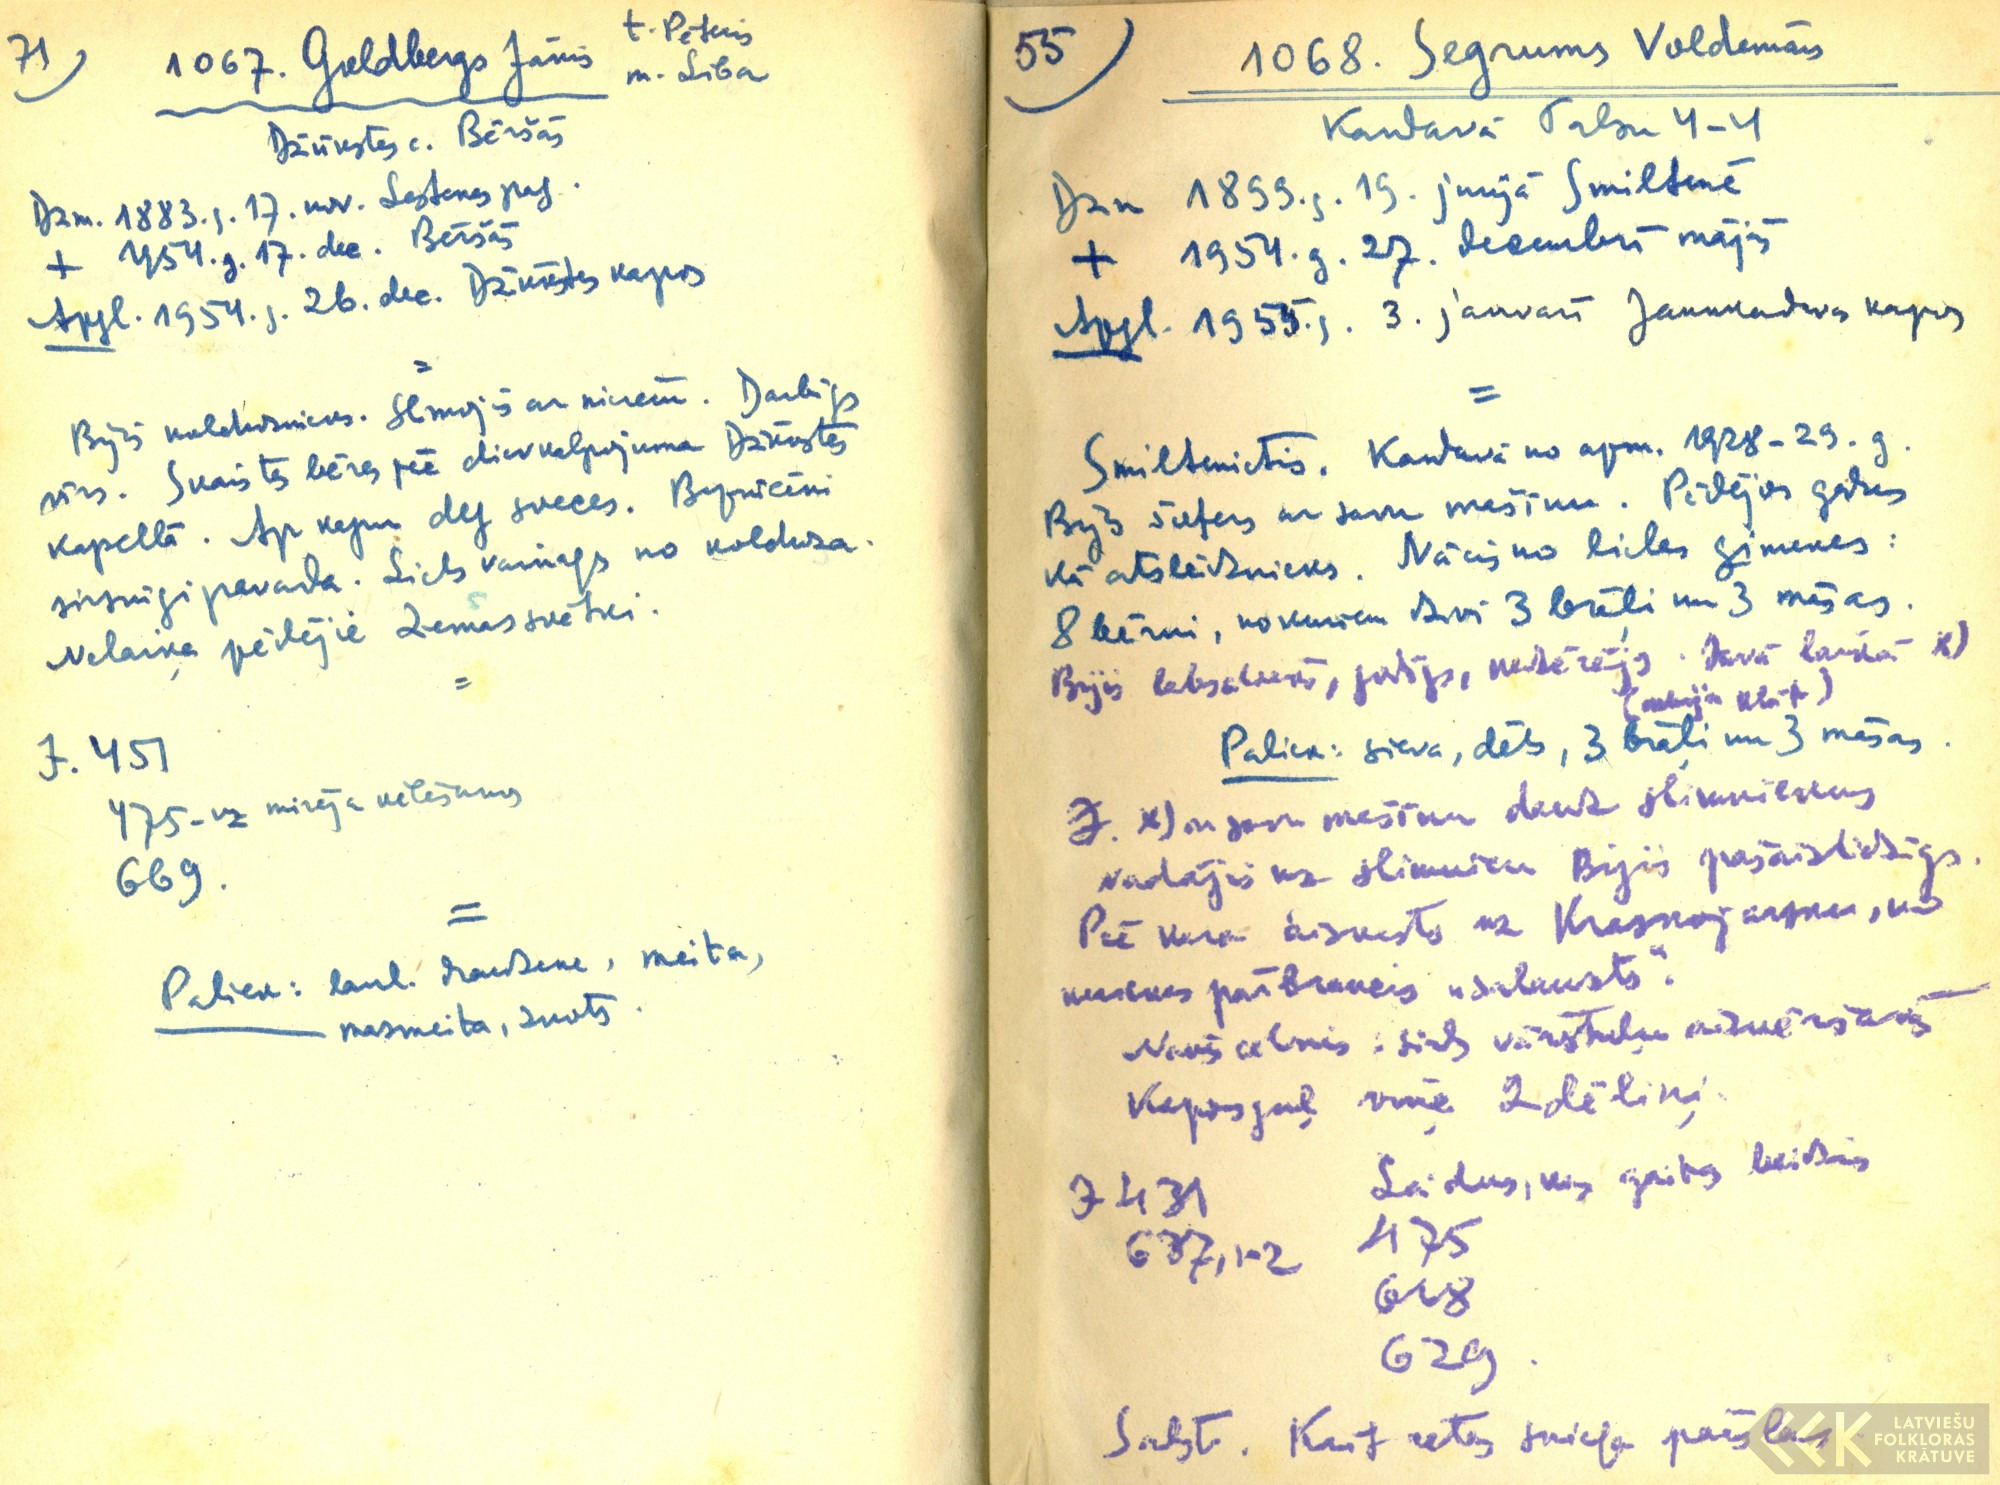 71)
1067. Goldbergs Jānis
t. Pēteris
m. Liba
Džūkstes c. Bēršās
Dzm. 1883.g. 17. nov. Lestenes pag.
+ 1954.g. 17. dec. Bēršās
Apgl. 1954.g. 26. dec. Džūkstes kapos
=
Bijis kolchoznieks. Slimojis ar nierēm. Darbīgs
vīrs. Skaistas bēres pēc dievkalpojuma Džūkstes
kapellā. Ap kapu deg sveces. Bijnicēni
sirsnīgi pavada. Liels vainags no kolchoza.
Nelaiķa pēdējie Ziemassvētki.
=
J. 451
475 - uz mirēja vēlēšanos
669.
=
Paliek: laul. draudzene, meita,
mazmeita, znots.
55)
1068. Segrums Voldemārs
Kandavā Talsu 4-4
Dzm 1899.g. 19. jūnijā Smiltenē
+ 1954.g. 27. decembrī mājās
Apgl. 1955.g. 3. janvarī Jaunkandavas kapos
=
Smiltenietis. Kandavā no apm. 1928-29.g.
Bijis šofers ar savu mašīnu. Pēdējos gados
kā atslēdznieks. Nācis no lielas ģimenes:
8 bērni, no kuriem dzīvi 3 brāļi un 3 māsas.
Bijis labsirdīgs, godīgs, nedzērājs. Savā laikā x)
(nebija klāt)
Paliek: sieva, dēls, 3 brāļi un 3 māsas.
J. x) ar savu mašīnu daudz slimniekus
vadājis uz slimnīcu Bijis pašaizliedzīgs.
Pēc kara aizvests uz Krasnojarsku, no
kurienes pārbraucis "salauzts".
Nāves cēlonis: sirds vārstuļu aizkērsēšanās
Kapos guļ viņa 2 dēliņi.
J 431
637,1-2
Laidus, kas gaitas beidzis
475
618
629.
Salst. Krīt retas sniega pārslas
LATVIEŠU
FOLKLORAS
KRĀTUVE